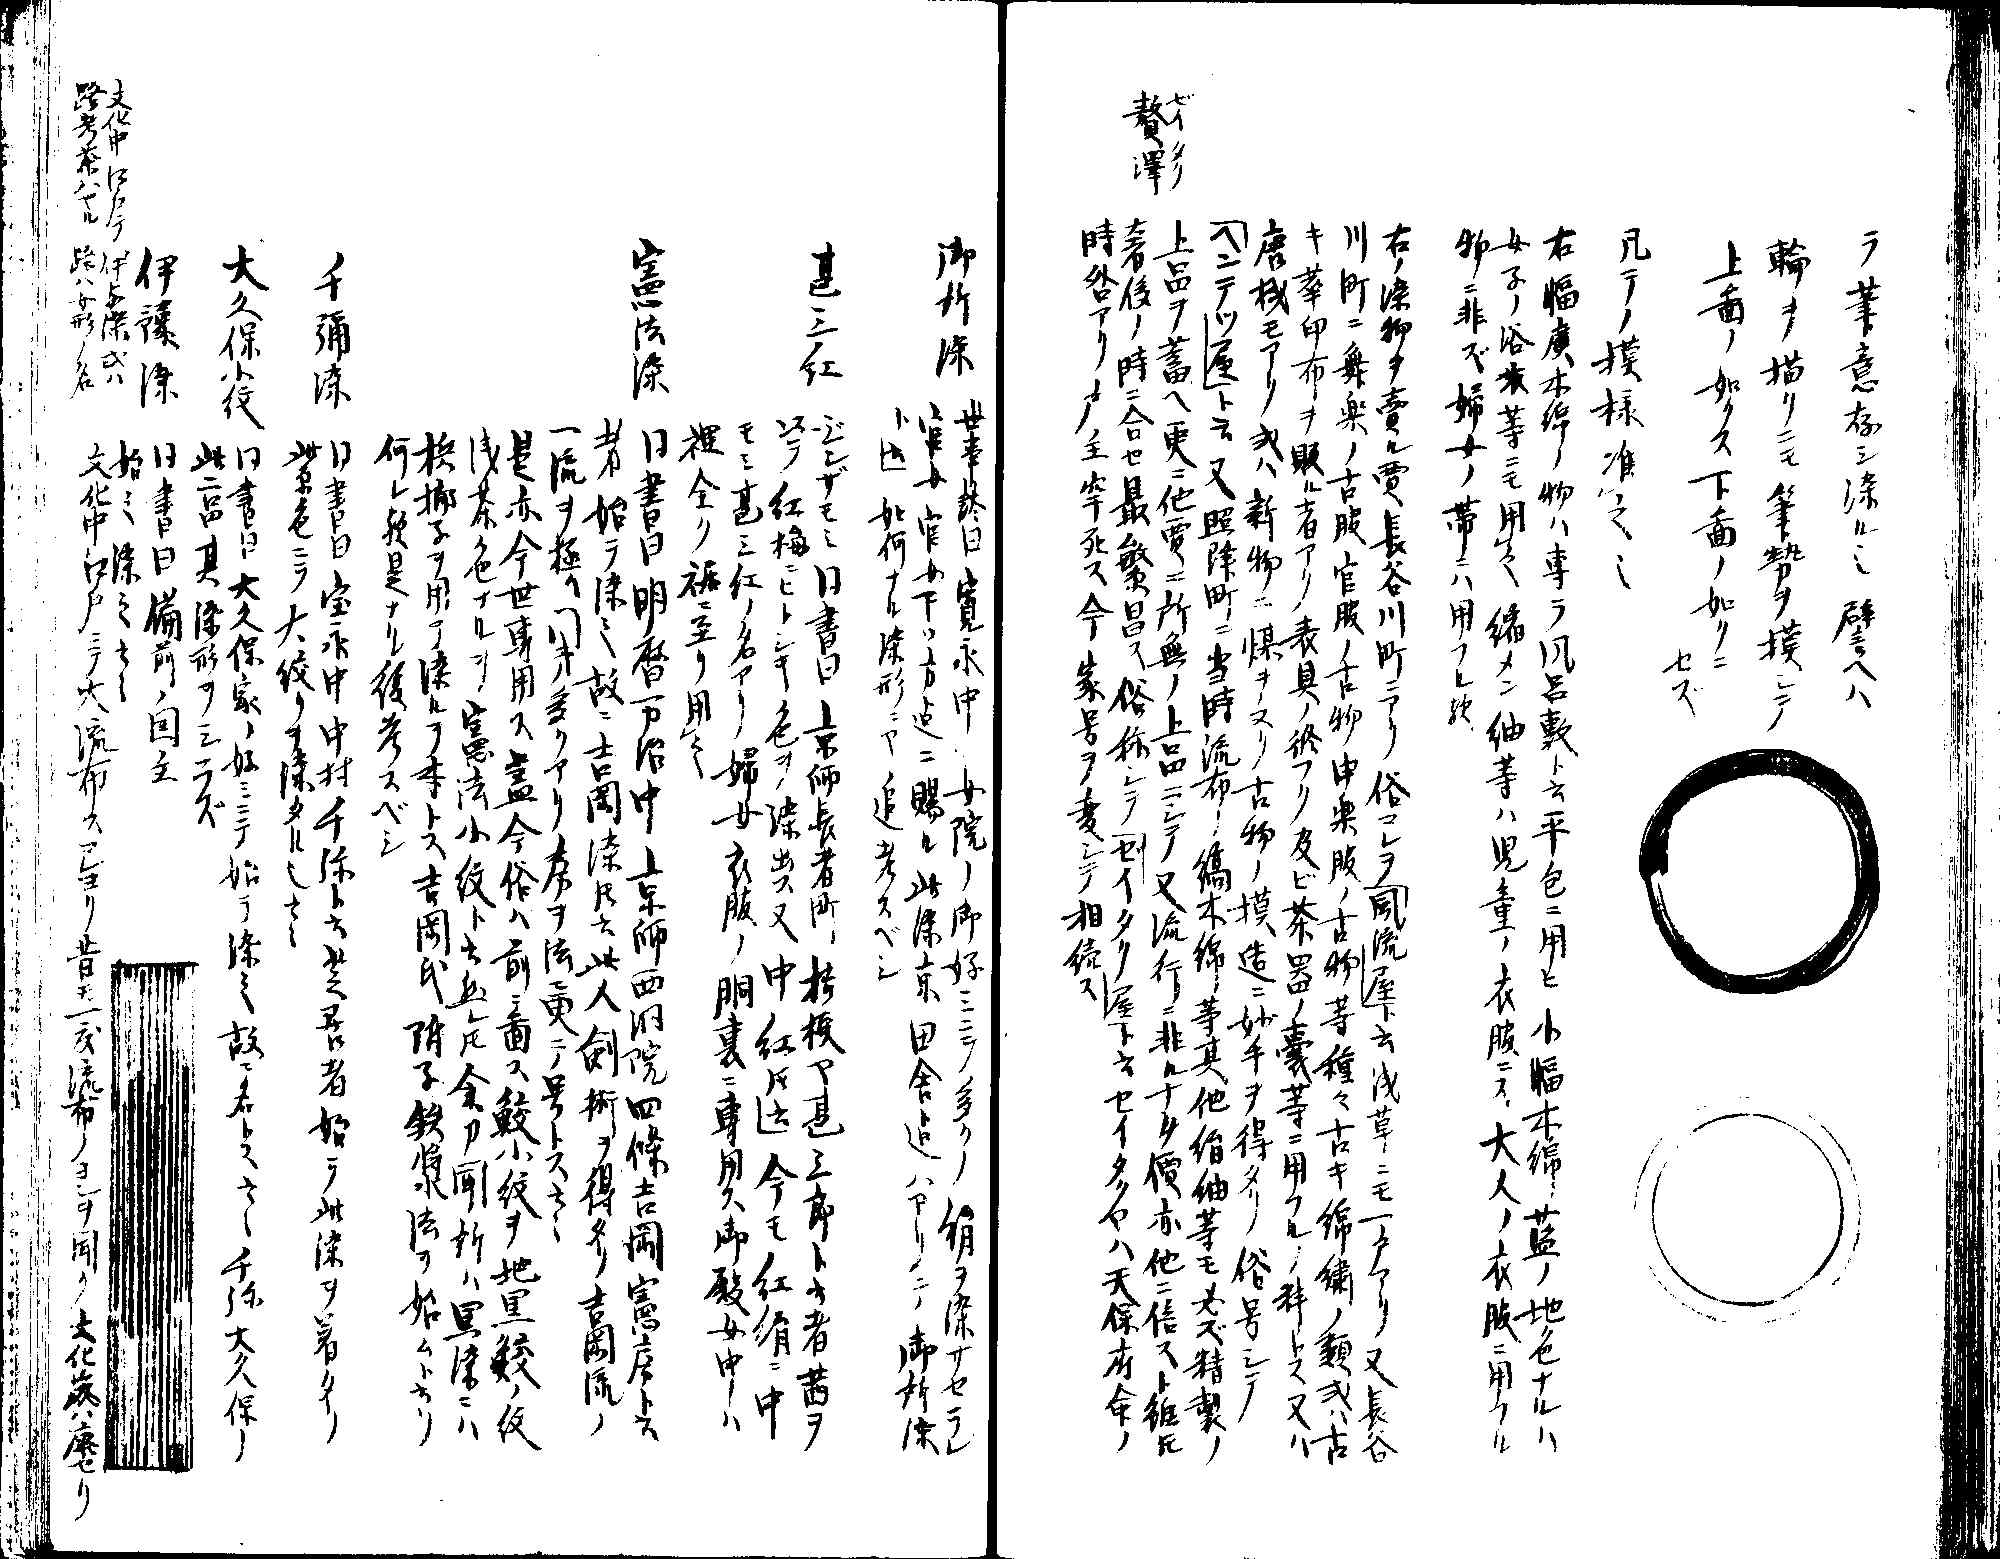 ラ筆意存シ染ル也 譬ヘハ
輪ヲ描クニモ筆勢ヲ模シテ
上畫ノ如クス下畫ノ如クニ
セズ
凡テノ模様准之也
右幅廣木綿ノ物ハ専ラ風呂敷ト云平包ニ用ヒ小幅木綿藍ノ地色ナルハ
女子ノ浴衣等ニモ用之縮メン紬等ハ児童ノ衣服ニス大人ノ衣服ニ用フル
物ニ非ズ婦女ノ帯ニハ用フル歟
右ノ染物ヲ賣ル賈長谷川町ニアリ俗コレヲ風流屋ト云浅草ニモ一戸アリ又長谷
川町ニ舞楽ノ古服官服ノ古物申楽服ノ古物等種々古キ錦繍ノ類或ハ古
キ華印布ヲ販ル者アリ表具ノ縁フリ及ビ茶器ノ嚢等ニ用フルノ料トス又ハ
唐棧モアリ或ハ新物ニ煤ヲヌリ古物ノ摸造ニ妙手ヲ得タリ俗号シテ
ヘンテツ屋ト云又照降町ニ当時流布ノ縞木綿等其他絹紬等モ必ズ精製ノ
上品ヲ蓄ヘ更ニ他賈ニ所無ノ上品ニシテ又流行ニ非ルナク價亦他ニ倍スト雖ドモ
奢侈ノ時ニ合セ最繁昌ス俗称シテセイタク屋ト云セイタクヤハ天保府命ノ
時咎アリ戸主牢死ス今家号ヲ変シテ相続ス
ゼイタク
贅澤
御所染
世事談曰寛永中女院ノ御好ミニテ多クノ絹ヲ染サセラレ
官女官女下ノ方迄ニ賜ル此染京田舎迄ハヤリシニ御所染
ト云 如何ナル染形ニヤ追考スベシ
甚三紅
ジンザモミ同書曰京師長者町桔梗ヤ甚三郎ト云者茜ヲ
以テ紅梅ニヒトシキ色ヲ染出ス又中紅トモ云今モ紅絹ニ中
モミ甚三紅ノ名アリ婦女衣服ノ胴裏ニ専用ス御殿女中ハ
裡全ク裾ニ至リ用之
憲法染
同書曰明暦万治中京師西洞院四條吉岡憲房ト云
者始テ染之故ニ吉岡染トモ云此人剣術ヲ得タリ吉岡流ノ
一流ヲ極ク門弟多クアリ房ヲ法ニ更テ号トス云々
是亦今世専用ス蓋今俗ハ前ニ畫ス鮫小紋ヲ地黒鮫ノ紋
浅茶色ナルヲ憲法小紋ト云然レドモ余ガ聞所ハ黒染ニハ
檳榔子ヲ用フ染ルヲ本トス吉岡氏附子鉄漿法ヲ始ムト云リ
何レ歟是ナル後考スベシ
千彌染
同書曰宝永中中村千弥ト云芝居者始テ此染ヲ着タリ
紫色ニテ大絞リヲ染タル也云々
大久保小紋
同書曰大久保家ノ好ミニテ始テ染之故ニ名トス云々千弥大久保ノ
此二品其染形ヲシラズ
伊豫染
同書曰備前ノ国主
始之染之云々
文化中江戸ニテ大流布スコレヨリ昔モ一度流布ノヨシヲ聞ク文化
後ハ廃セリ
文化中江戸ニテ伊与染或ハ
路考茶ハヤル 路ハ女形ノ名